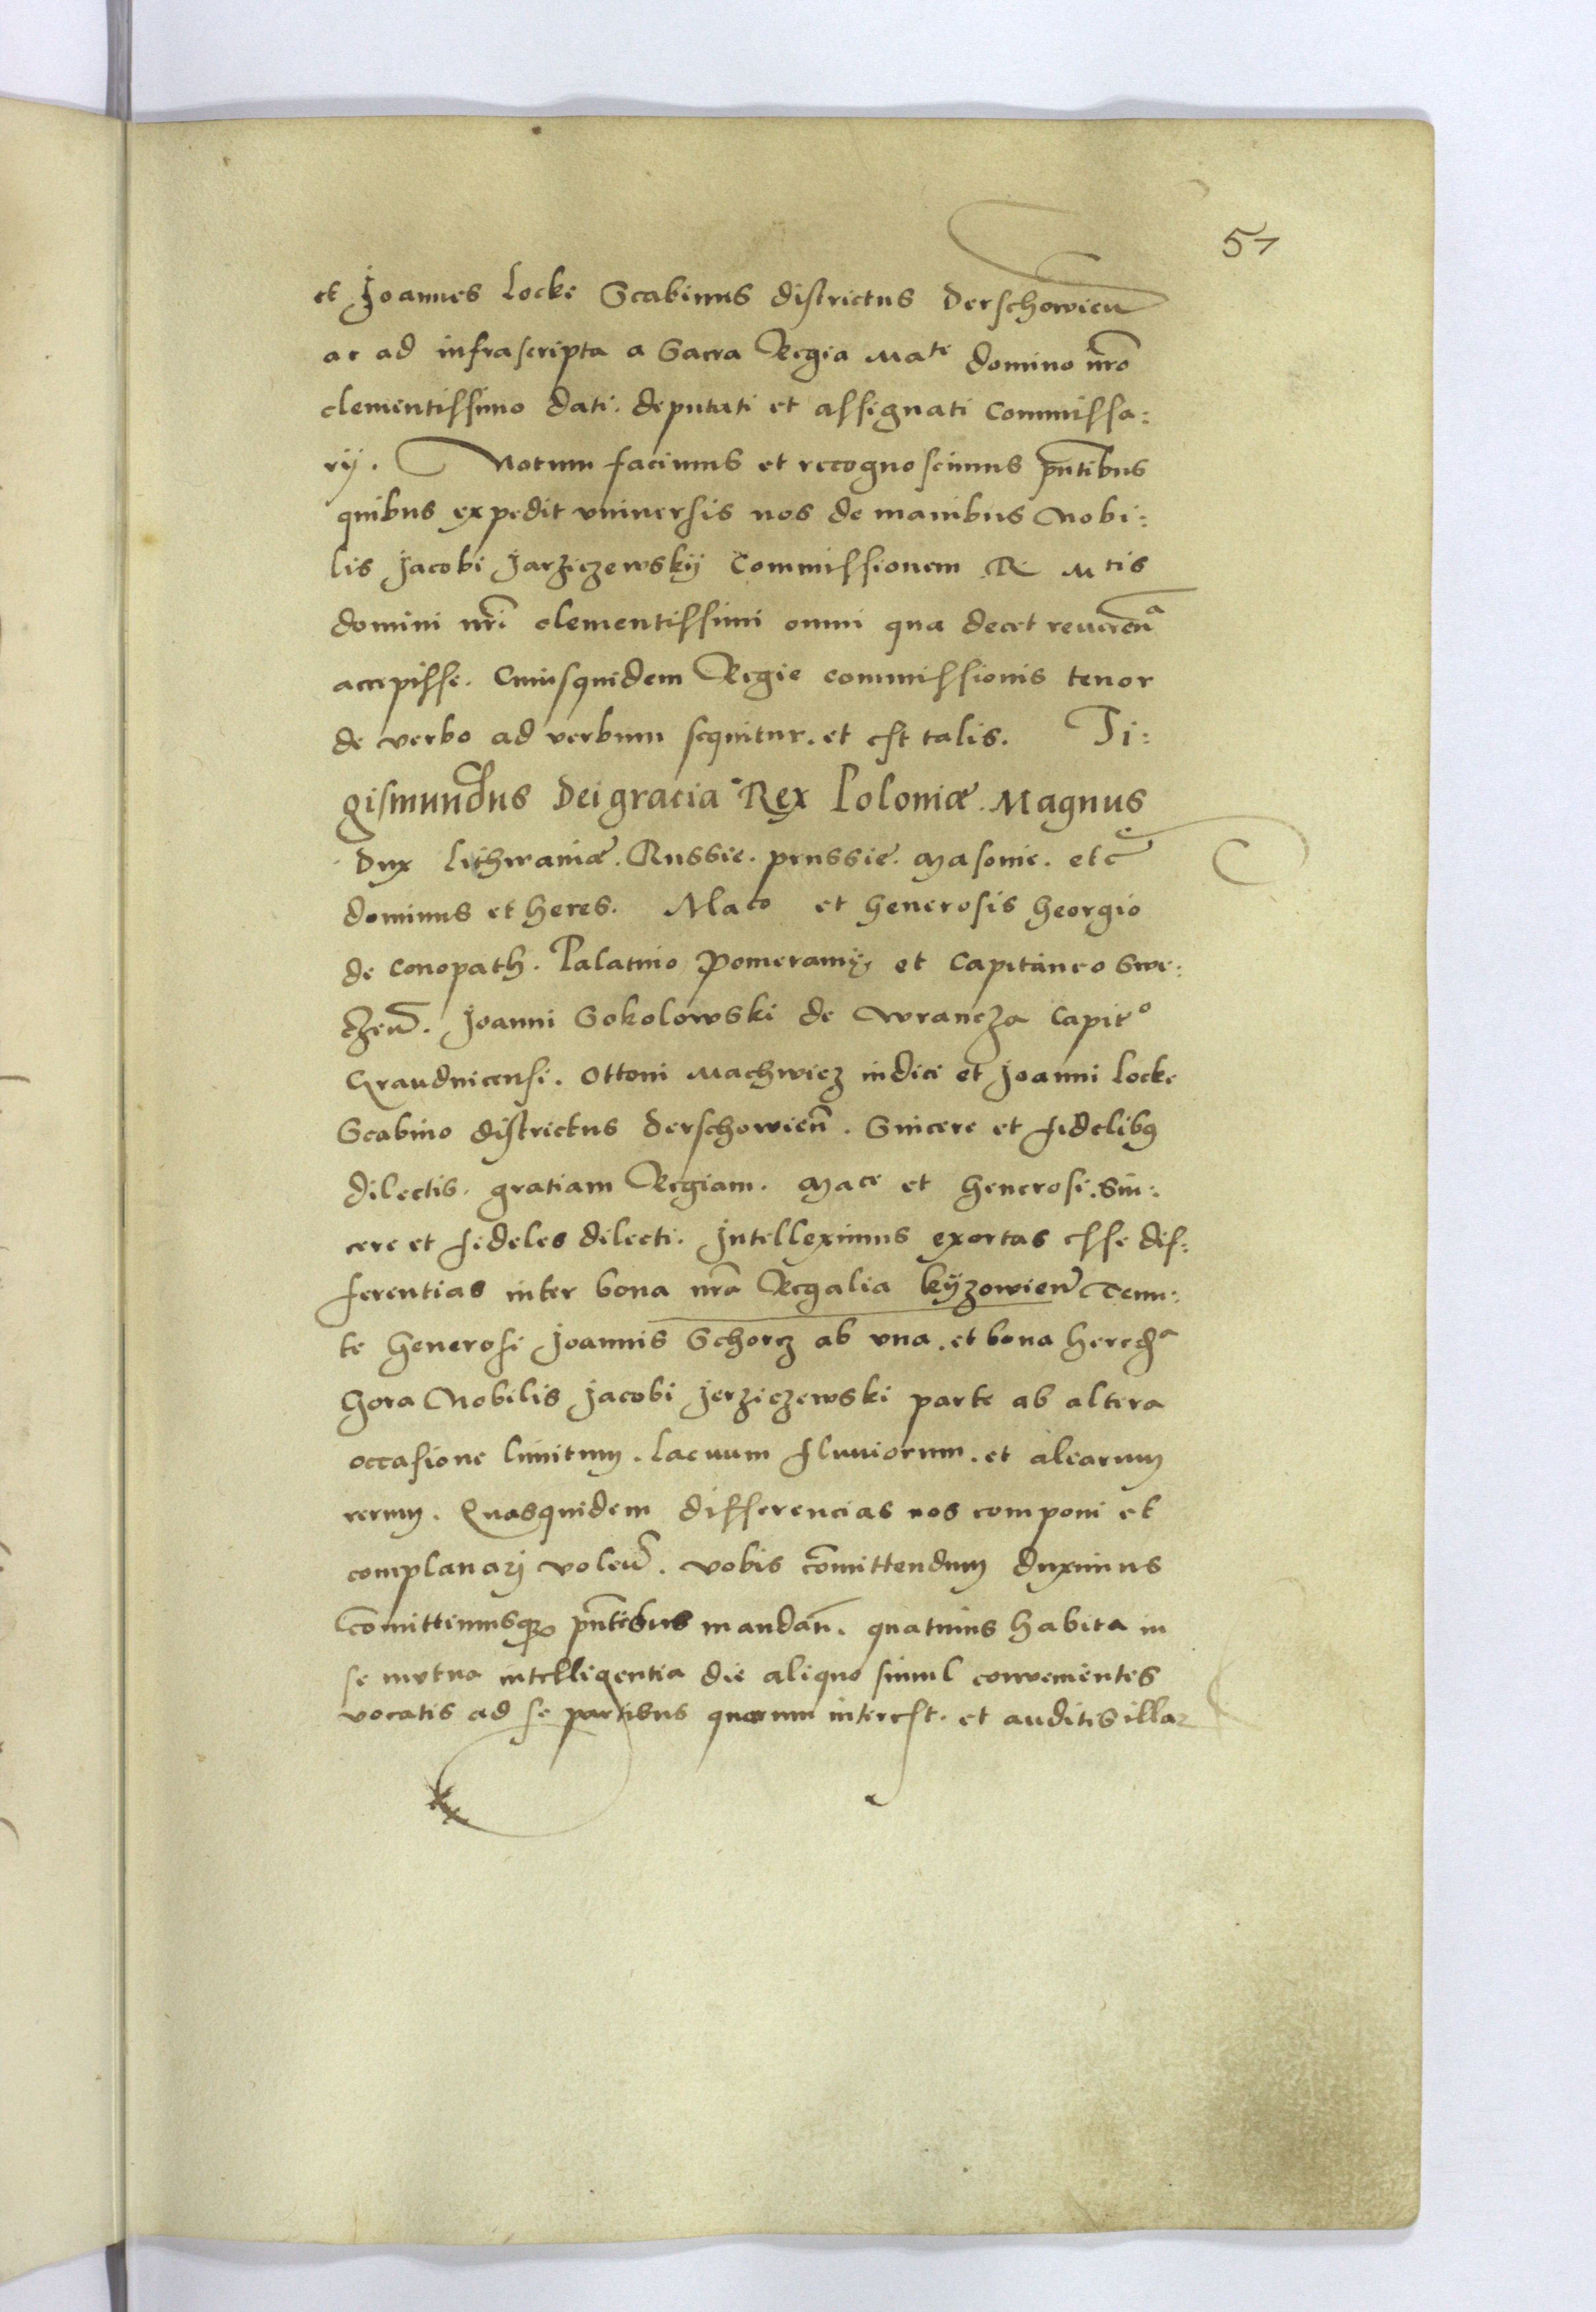 51
et Joannes Locke Scabinus districtus Derschowien̄
ac ad infrascripta a Sacra Regia Mate domino nr̄o
clementissimo dati. deputati et assignati Commissa:
rij. Notum facimus et recognoscimus pn̄tibus
quibus expedit vniuersis nos de manibus Nobi:
lis Jacobi Jarziczewskÿ Commissionem R Mtis
domini nr̄i clementissimi omni qua decet reueren̄a
accepisse. Cuiusquidem Regie commissionis tenor
de verbo ad verbum sequitur. et est talis. Si:
gismundus Dei gracia Rex Poloniæ. Magnus
Dux Lithwaniæ. Russie. prussie. Masouie. etc̄
dominus et heres. Maco et Generosis Georgio
de Conopath. Palatino Pomeranię et Capitaneo Swe:
czen̄. Joanni Sokolowski de Wrancza Capito
Graudnicensi. Ottoni Machwicz iudici et Joanni Locke
Scabino districtus Derschowien̄. Sincere et fidelibus
dilectis. gratiam Regiam. Mace et Generosi. Sin:
cere et fideles dilecti. Intelleximus exortas esse dif:
ferentias inter bona nr̄a Regalia kÿzowien̄ Tenu:
te Generosi Joannis Schorcz ab vna. et bona hereda
Gora Nobilis Jacobi Jerziczewski parte ab altera
occasione limitum. lacuum fluuiorum. et aliarum
rerum. Quasquidem differencias nos componi et
complanarj volen̄. vobis com̄ittendum duximus
Com̄ittimusque pn̄tibus mandan̄. quatinus habita in
se mutua intelligentia die aliquo simul conuenientes
vocatis ad se partibus quorum interest. et auditis illaꝝ